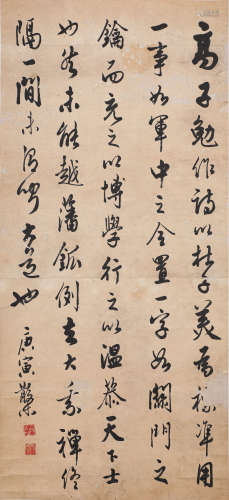 高子勉作詩以杜子美為標準用
一事如軍中之令置一字如關門之
鑰而充之以博學行之以溫恭天下士
也然未能越藩例大乘禪終
隔一間未得聞大道也 庚寅